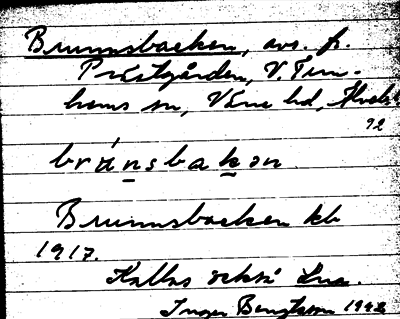 Brunnsbacken, avs. fr.
Prästgården, V. Tun-
hems sn, Väne hd, Älvsb.
92
brúnsbakən
Brunnsbacken kb
1917.
Kallas också
Inger Bengtsson 1942